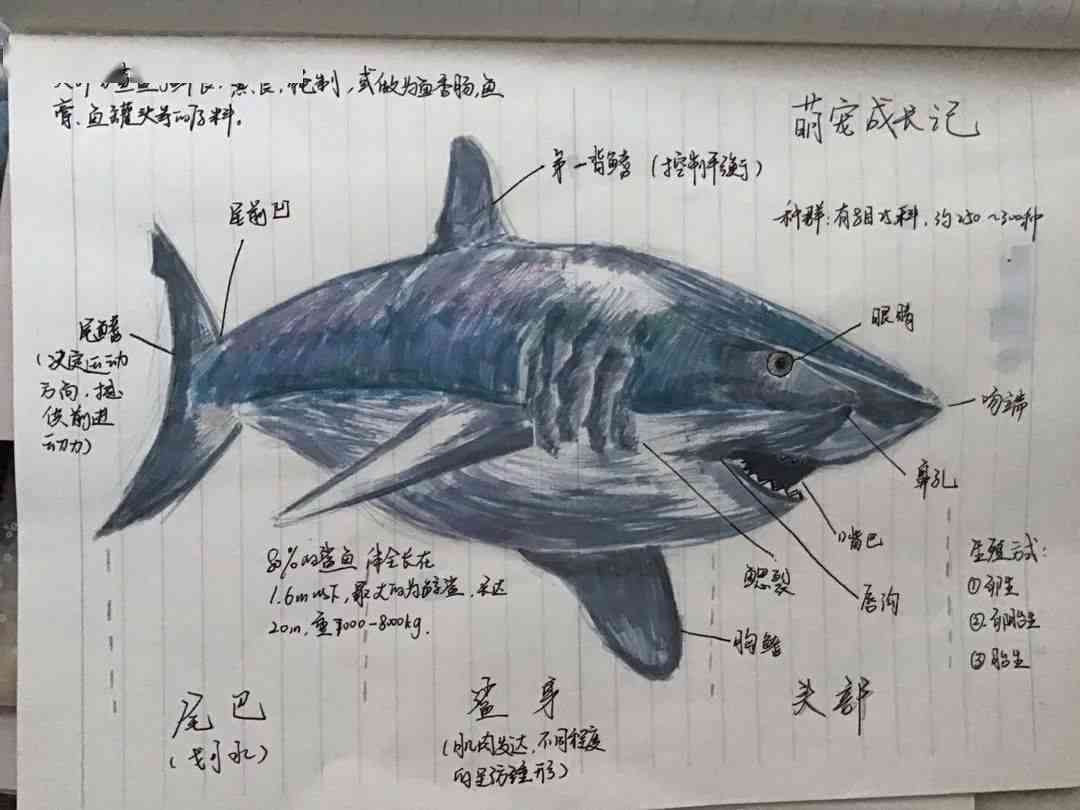 制,或做为鱼香肠,鱼
膏、鱼罐头等的原料。
萌宠成长记
第一背鳍(控制平衡)
尾前凹
种群:有8目 科,约250~300种
眼睛
尾鳍
(决定运动
方向,提
供前进
动力)
吻端
鼻孔
嘴巴
生殖方式:
8%的鲨鱼体全长在
1.6m以下,最大的为鲸鲨,长达
鳃裂
唇沟
①卵生
20m,重 000-8000kg.
②卵胎生
胸鳍
③胎生
尾巴
(划水)
鲨身
(肌肉发达,不同程度
的呈纺锤形)
头部